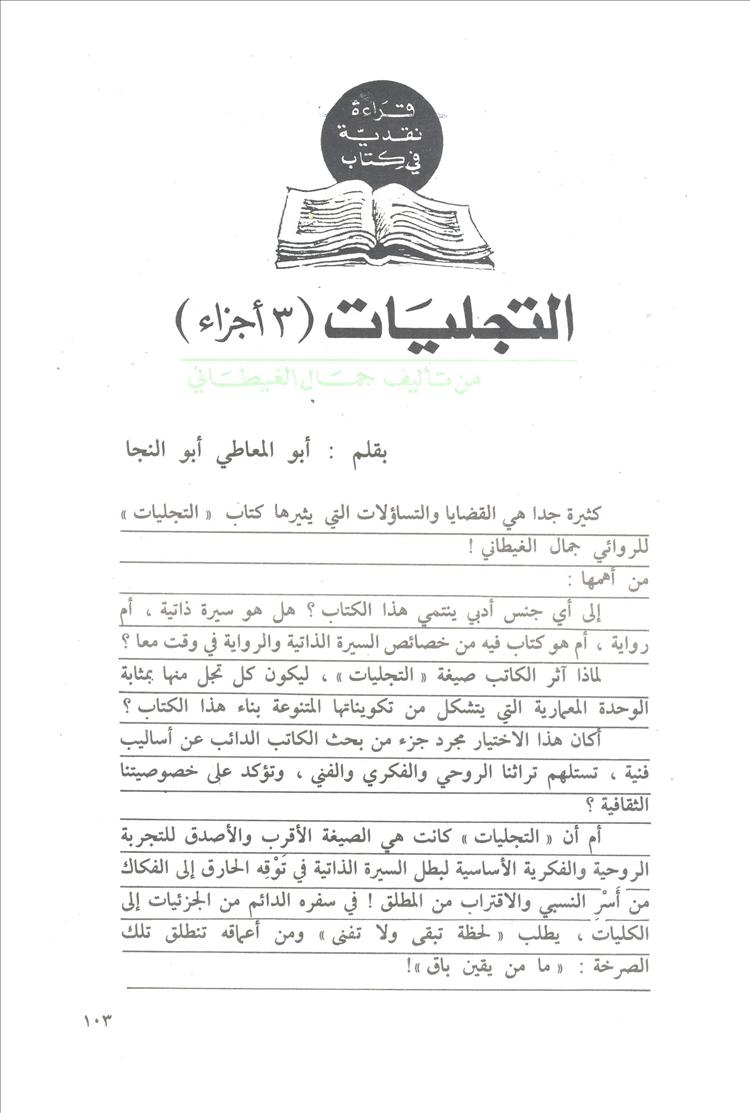 قراءة
نقدية
في كتاب
التجليات (٣ أجزاء)
من تأليف جمال الغيطاني
بقلم : أبو المعاطي أبو النجا
كثيرة جدا هي القضايا والتساؤلات التي يثيرها كتاب « التجليات »
للروائي جمال الغيطاني !
من أهمها :
إلى أي جنس أدبي ينتمي هذا الكتاب ؟ هل هو سيرة ذاتية ، أم
رواية ، أم هو كتاب فيه من خصائص السيرة الذاتية والرواية في وقت معا ؟
لماذا آثر الكاتب صيغة « التجليات » ، ليكون كل تجل منها بمثابة
الوحدة المعمارية التي يتشكل من تكويناتها المتنوعة بناء هذا الكتاب ؟
أكان هذا الاختيار مجرد جزء من بحث الكاتب الدائب عن أساليب
فنية ، تستلهم تراثنا الروحي والفكري والفني ، وتؤكد على خصوصيتنا
الثقافية ؟
أم أن « التجليات » كانت هي الصيغة الأقرب والأصدق للتجربة
الروحية والفكرية الأساسية لبطل السيرة الذاتية في تَوْقِه الحارق إلى الفكاك
من أَسْرِ النسبي والاقتراب من المطلق ! في سفره الدائم من الجزئيات إلى
الكليات ، يطلب « لحظة تبقى ولا تفنى » ومن أعماقه تنطلق تلك
الصرخة : « ما من يقين باق »!
١٠٣